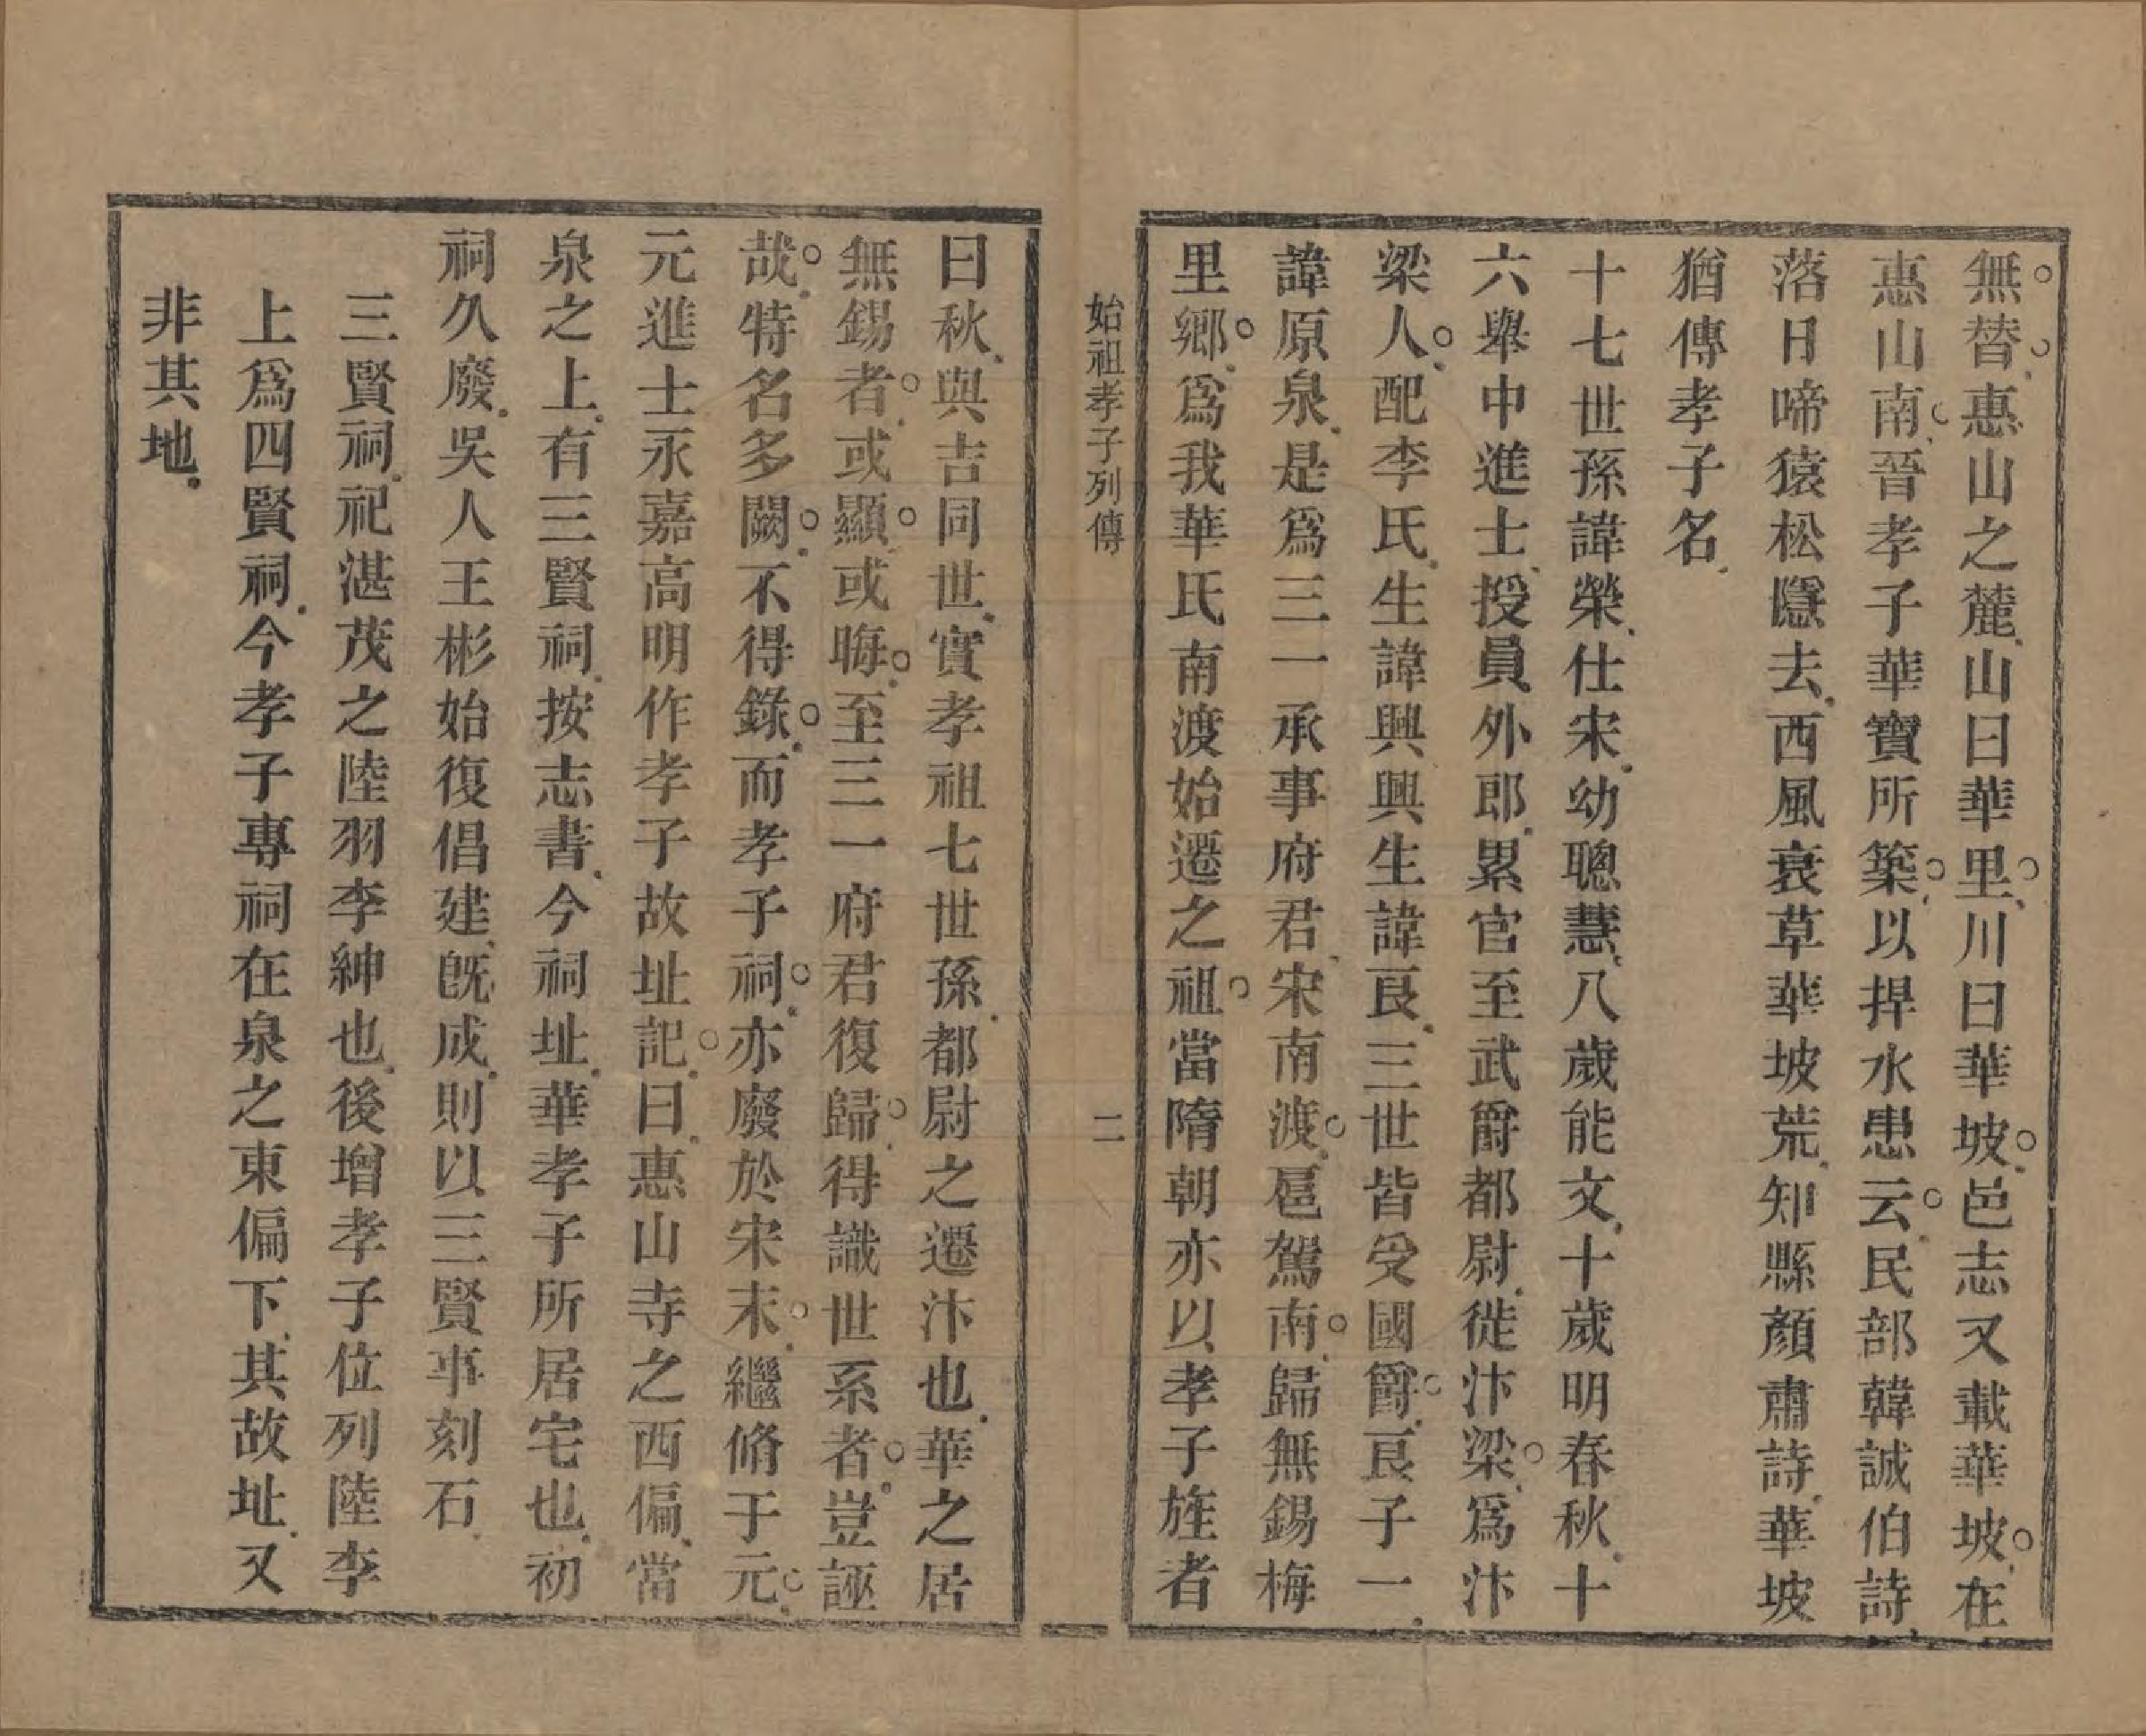 無替惠山之麓山曰華里川曰華坡邑志又載華坡在
惠山南晉孝子華寶所築以捍水患云民部韓誠伯詩
落日啼猿松隱去西風衰草華坡荒知縣顏肅詩華坡
猶傳孝子名
十七世孫諱榮仕宋幼聰慧八歲能文十歲明春秋十
六舉中進士授員外郎累官至武爵都尉徙汴梁爲汴
梁人配李氏生諱興興生諱良三世皆受國爵良子一
諱原泉是爲三一承事府君宋南渡扈駕南歸無錫梅
里鄉爲我華氏南渡始遷之祖當隋朝亦以孝子旌者
始祖孝子列傳
二
曰秋與吉同世實孝祖七世孫都尉之遷汴也華之居
無錫者或顯或晦至三一府君復歸得識世系者豈誣
哉特名多闕不得錄而孝子祠亦廢於宋末繼脩于元
元進士永嘉高明作孝子故址記曰惠山寺之西偏當
泉之上有三賢祠按志書今祠址華孝子所居宅也初
祠久廢吳人王彬始復倡建旣成則以三賢事刻石
三賢祠祀湛茂之陸羽李紳也後增孝子位列陸李
上爲四賢祠今孝子專祠在泉之東偏下其故址又
非其地